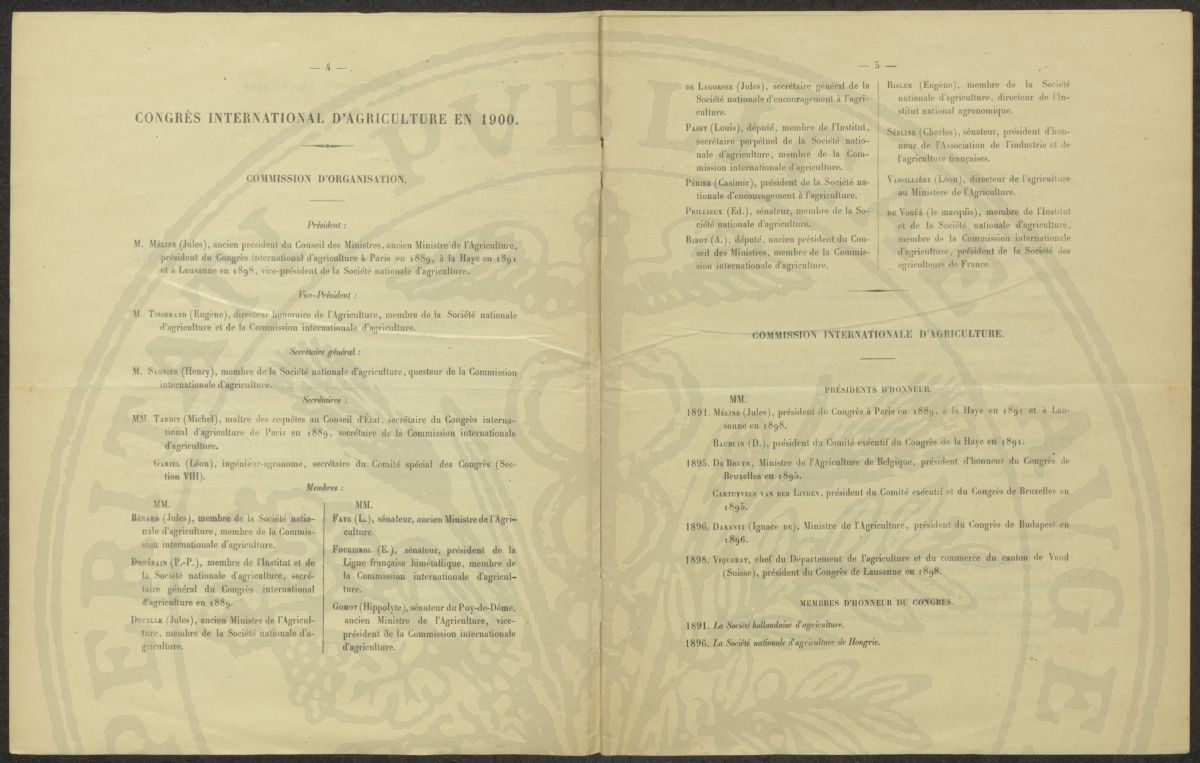 — 4 —
CONGRÈS INTERNATIONAL D'AGRICULTURE EN 1900.
COMMISSION D'ORGANISATION.
Président :
M. Méline (Jules), ancien président du Conseil des Ministres, ancien Ministre de l'Agriculture,
président du Congrès international d'agriculture à Paris en 1889, à la Haye en 1891
et à Lausanne en 1898, vice-président de la Société nationale d'agriculture.
Vice-Président :
M. Tisserand (Eugène), directeur honoraire de l'Agriculture, membre de la Société nationale
d'agriculture et de la Commission internationale d'agriculture.
Secrétaire général :
M. Sagnier (Henry), membre de la Société nationale d'agriculture, questeur de la Commission
internationale d'agriculture.
Secrétaires :
MM. Tardit (Michel), maître des requêtes au Conseil d'État, secrétaire du Congrès interna-
tional d'agriculture de Paris en 1889, secrétaire de la Commission internationale
d'agriculture.
Gabiel (Léon), ingénieur-agronome, secrétaire du Comité spécial des Congrès (Sec-
tion VIII).
Membres :
MM.
Bénard (Jules), membre de la Société natio-
nale d'agriculture, membre de la Commis-
sion internationale d'agriculture.
Dehérain (P.-P.), membre de l'Institut et de
la Société nationale d'agriculture, secré-
taire général du Congrès international
d'agriculture en 1889.
Develle (Jules), ancien Ministre de l'Agricul-
ture, membre de la Société nationale d'a-
griculture.
MM.
Faye (L.), sénateur, ancien Ministre de l'Agri-
culture.
Fougeirol (E.), sénateur, président de la
Ligue française bimétallique, membre de
la Commission internationale d'agricul-
ture.
Gomot (Hippolyte), sénateur du Puy-de-Dôme,
ancien Ministre de l'Agriculture, vice-
président de la Commission internationale
d'agriculture.
— 5 —
de Lagorsse (Jules), secrétaire général de la
Société nationale d'encouragement à l'agri-
culture.
Passy (Louis), député, membre de l'Institut,
secrétaire perpétuel de la Société natio-
nale d'agriculture, membre de la Com-
mission internationale d'agriculture.
Périer (Casimir), président de la Société na-
tionale d'encouragement à l'agriculture.
Prillieux (Ed.), sénateur, membre de la So-
ciété nationale d'agriculture.
Ribot (A.), député, ancien président du Con-
seil des Ministres, membre de la Commis-
sion internationale d'agriculture.
Risler (Eugène), membre de la Société
nationale d'agriculture, directeur de l'In-
stitut national agronomique.
Sébline (Charles), sénateur, président d'hon-
neur de l'Association de l'industrie et de
l'agriculture françaises.
Vassillière (Léon), directeur de l'agriculture
au Ministère de l'Agriculture.
de Vogüé (le marquis), membre de l'Institut
et de la Société nationale d'agriculture,
membre de la Commission internationale
d'agriculture, président de la Société des
agriculteurs de France.
COMMISSION INTERNATIONALE D'AGRICULTURE.
PRÉSIDENTS D'HONNEUR.
MM.
1891. Méline (Jules), président du Congrès à Paris en 1889, à la Haye en 1891 et à Lau-
sanne en 1898.
Bauduin (D.), président du Comité exécutif du Congrès de la Haye en 1891.
1895. De Bruyn, Ministre de l'Agriculture de Belgique, président d'honneur du Congrès de
Bruxelles en 1895.
Cartuyvels van der Linden, président du Comité exécutif et du Congrès de Bruxelles en
1895.
1896. Daranyi (Ignace de), Ministre de l'Agriculture, président du Congrès de Budapest en
1896.
1898. Viquerat, chef du Département de l'agriculture et du commerce du canton de Vaud
(Suisse), président du Congrès de Lausanne en 1898.
MEMBRES D'HONNEUR DU CONGRÈS.
1891. La Société hollandaise d'agriculture.
1896. La Société nationale d'agriculture de Hongrie.